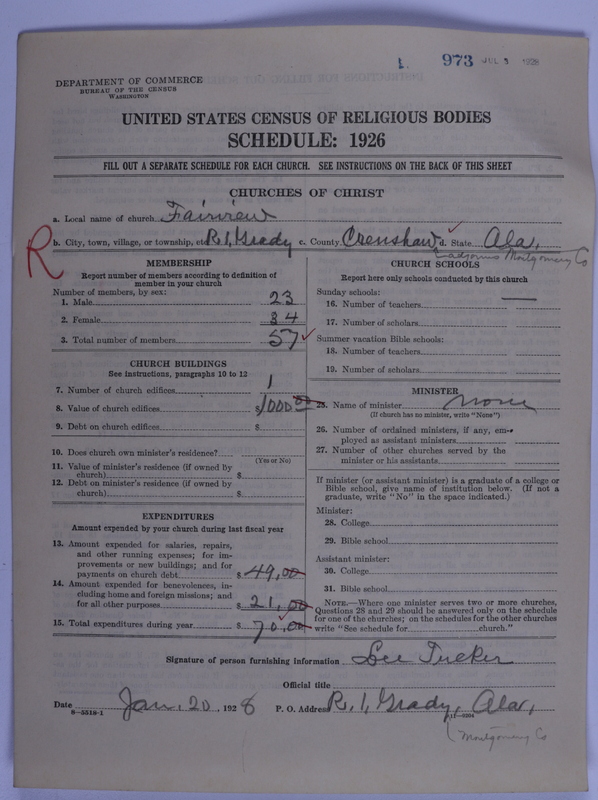 1. 973 JUL 3 1928
DEPARTMENT OF COMMERCE
BUREAU OF THE CENSUS
WASHINGTON
UNITED STATES CENSUS OF RELIGIOUS BODIES
SCHEDULE: 1926
FILL OUT A SEPARATE SCHEDULE FOR EACH CHURCH. SEE INSTRUCTIONS ON THE BACK OF THIS SHEET
CHURCHES OF CHRIST
a. Local name of church Fairview
R b. City, town, village, or township, etc. R 1, Grady c. County Crenshaw d. State Ala,
adjoins Montgomery Co
MEMBERSHIP
Report number of members according to definition of
member in your church
Number of members, by sex:
1. Male 23
2. Female 34
3. Total number of members 57
CHURCH BUILDINGS
See instructions, paragraphs 10 to 12
7. Number of church edifices 1
8. Value of church edifices $1000 00
9. Debt on church edifices $
10. Does church own minister's residence?
(Yes or No)
11. Value of minister's residence (if owned by
church) $
12. Debt on minister's residence (if owned by
church) $
EXPENDITURES
Amount expended by your church during last fiscal year
13. Amount expended for salaries, repairs,
and other running expenses; for im-
provements or new buildings; and for
payments on church debt $ 49,00
14. Amount expended for benevolences, in-
cluding home and foreign missions; and
for all other purposes $ 21,00
15. Total expenditures during year $ 70,00
CHURCH SCHOOLS
Report here only schools conducted by this church
Sunday schools:
16. Number of teachers
17. Number of scholars
Summer vacation Bible schools:
18. Number of teachers
19. Number of scholars
MINISTER
25. Name of minister None
(If church has no minister, write "None")
26. Number of ordained ministers, if any, em-
ployed as assistant ministers
27. Number of other churches served by the
minister or his assistants
If minister (or assistant minister) is a graduate of a college or
Bible school, give name of institution below. (If not a
graduate, write "No" in the space indicated.)
Minister:
28. College
29. Bible school
Assistant minister:
30. College
31. Bible school
NOTE.—Where one minister serves two or more churches,
Questions 28 and 29 should be answered only on the schedule
for one of the churches; on the schedules for the other churches
write "See schedule for church."
Signature of person furnishing information Lee Tucker
Official title
Date Jan. 20, 1928 P. O. Address R. 1, Grady, Ala,
8—5518-1 11—9204
Montgomery Co